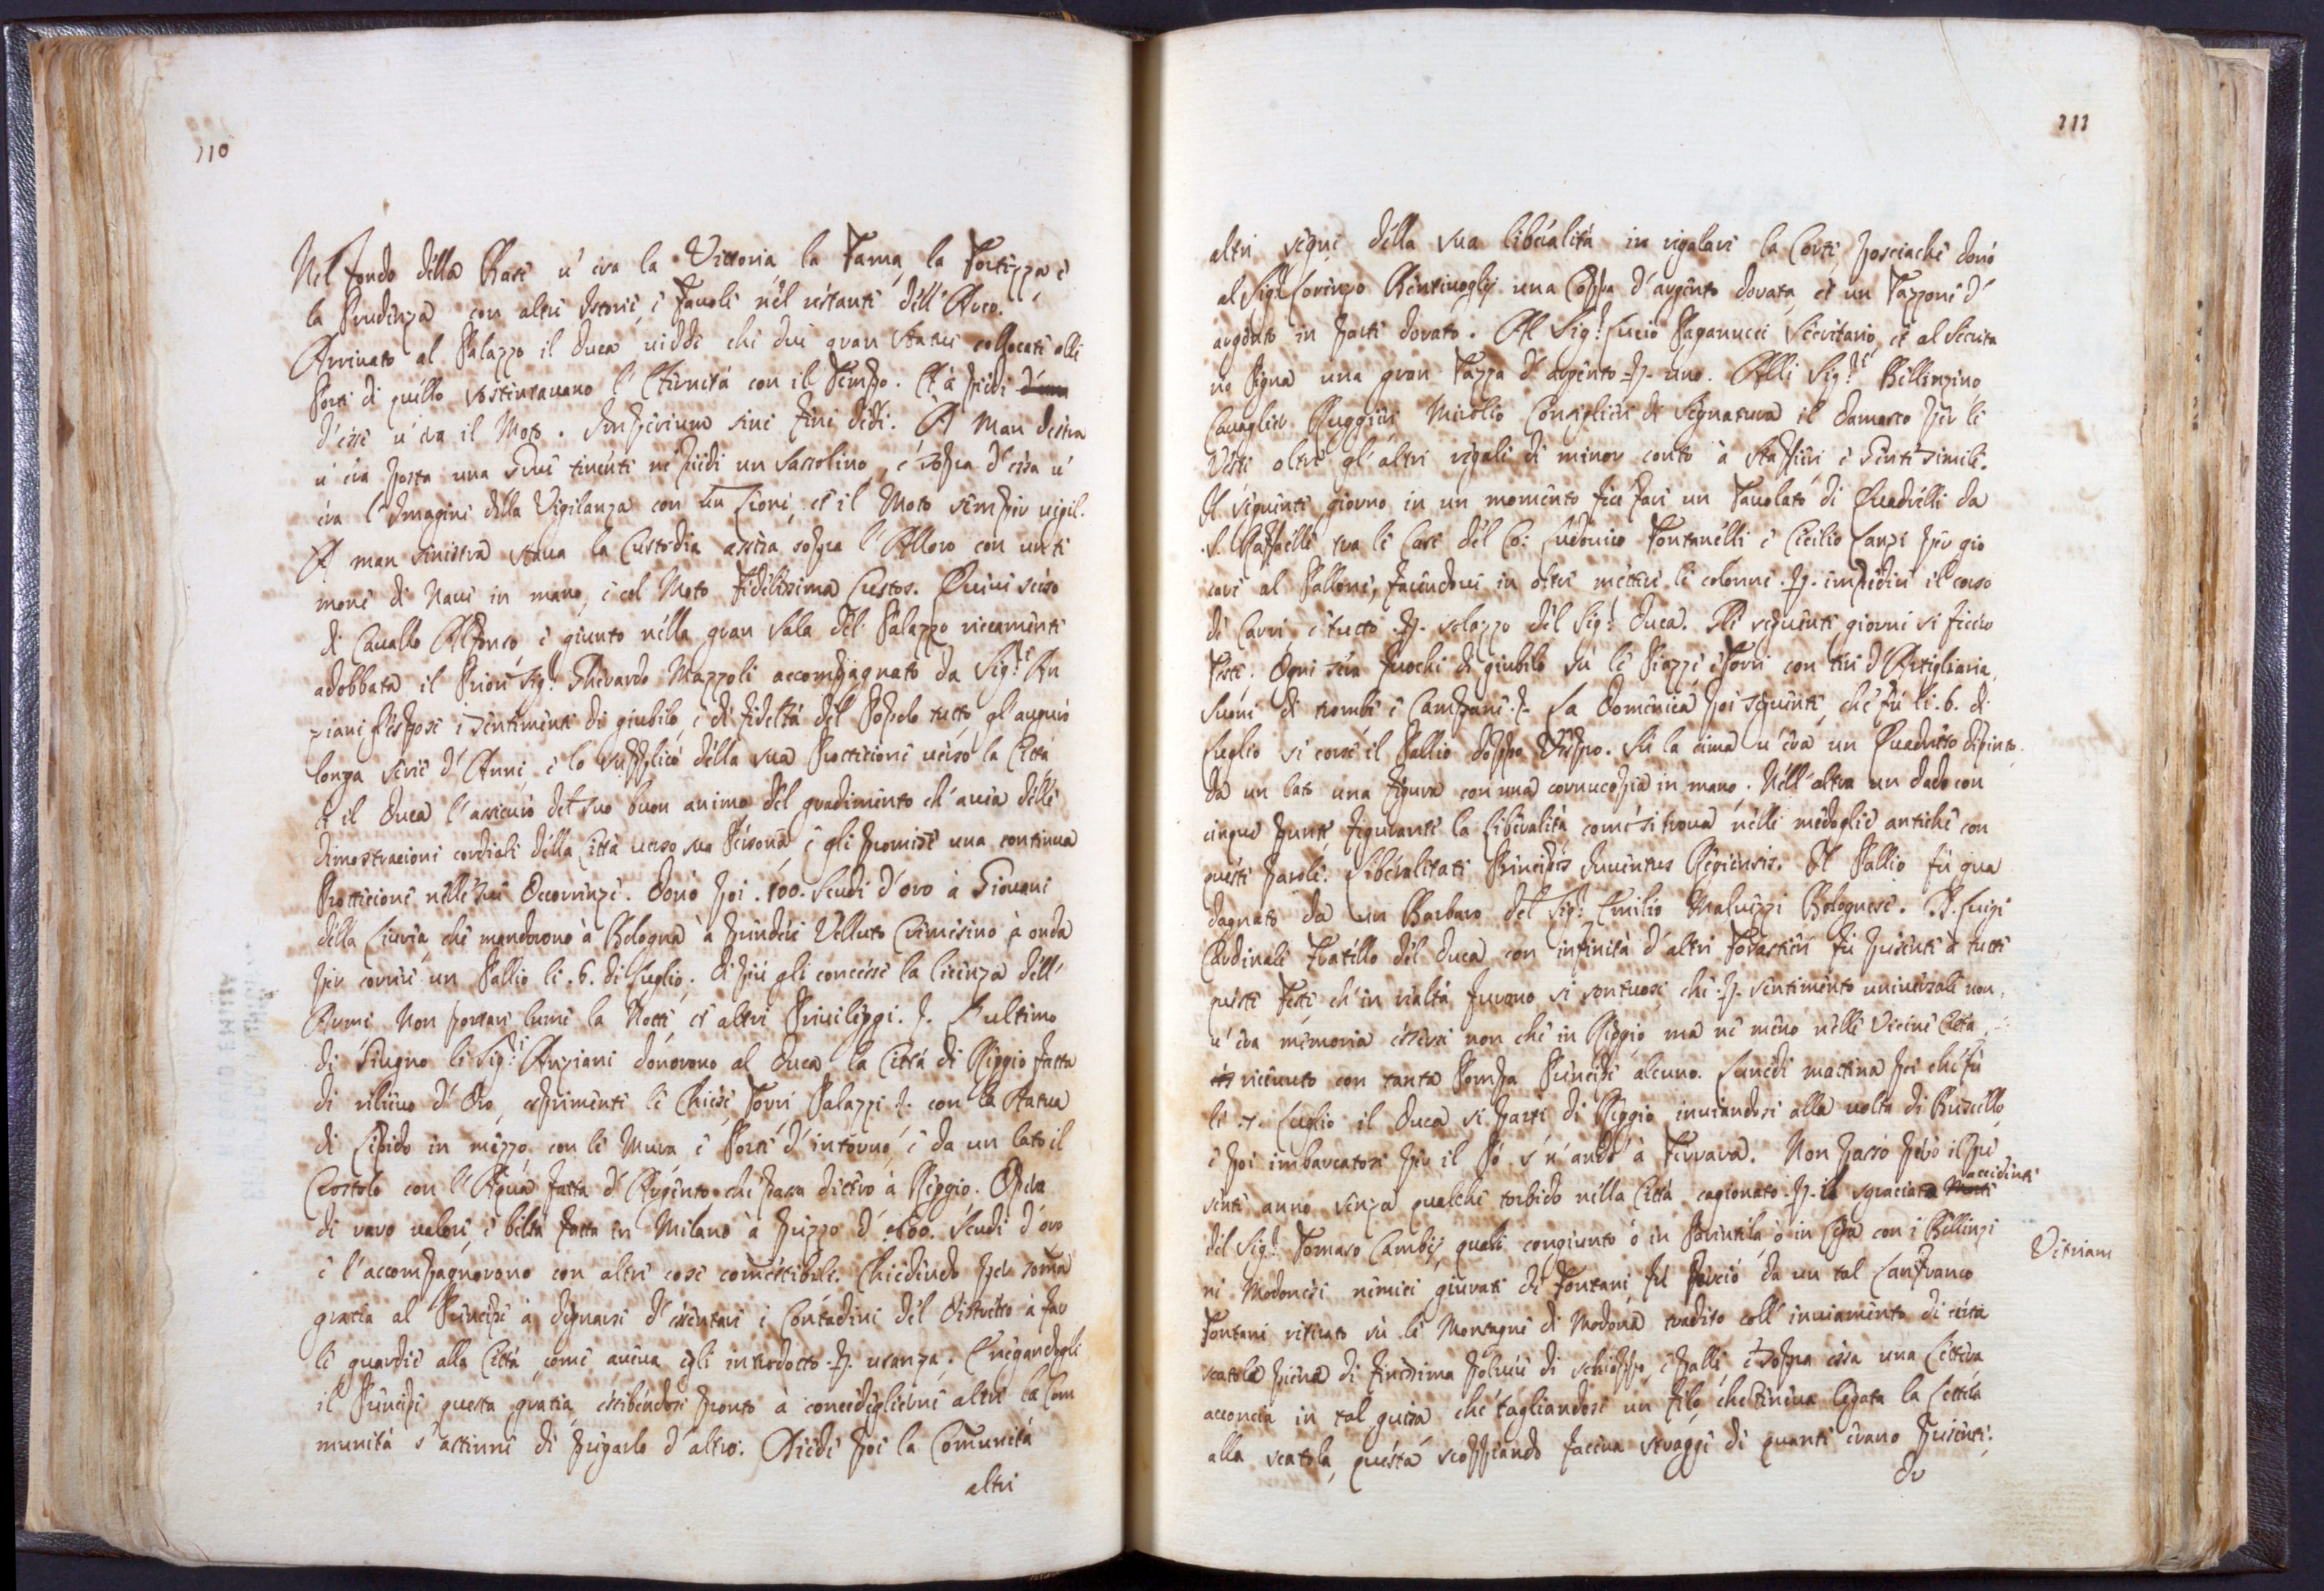 110
Nel fondo della Base u' era la Vittoria, la Fama, la Fortezza, e
la Prudenza con altre Istorie, e Fauole nel restante dell' Arco.
Arriuato al Palazzo il Duca uidde che due gran Statue collocate alle
Porte di quello sostentauano l' Eternità con il Tempo. Et à piedi d'una
d' esse u' era il Moto. Sine fine dedi. A Man destra
u' era posta una Grue tenente ne piedi un Sassolino, e sopra d' essa u'
era l' Imagine della Vigilanza con un Leone, et il Moto semper uigil.
A man sinistra staua la Custodia assisa sopra l' Alloro con un ti
mone di Naue in mano, e col Moto Fidelissima Custos. Quiui sceso
di Cauallo Alfonso, e giunto nella gran Sala del Palazzo riccamente
adobbata il Priore Sig.r Gherardo Mazzoli accompagnato da Sig.ri An
ziani gl' espose i sentimenti di giubilo, e di fideltà del Popolo tutto, gl' augurò
longa serie d' Anni, e lo supplicò della sua Protteccione uerso la Città
et il Duca l' assicurò del suo buon animo del gradimento ch' auea delle
dimostracioni cordiali della Città uerso sua Persona e gli promise una continua
Protteccione nelle sue Occorrenze. Donò poi .100. Scudi d' oro à Giouani
della Liurea, che mandorono à Bologna à prendere Velluto Cremesino à onda
per correre un Pallio li .6. di Luglio. Di più gli concesse la licenza dell'
Armi Non portar lume la Notte, et altri Priuileggi. L' ultimo
di Giugno li Sig.ri Anziani donorono al Duca la Città di Reggio fatta
di rilieuo d' Oro, esprimente le Chiese, Torri Palazzi con la Statua
di Lepido in mezzo con le Mura e Porte d' intorno, e da un lato il
Crostolo con l' Aqua fatta d' Argento che passa dietro à Reggio. Opera
di raro ualore, e beltà fatta in Milano à prezzo d' Scudi d' oro
e l' accompagnorono con altre cose comestibile. Chiedendo per somma
gratia al Prencipe à degnarsi d' essentare i Contadini del Distretto à far
le guardie alla Città come aueua egli introdotto p. usanza. E negandogli
il Prencipe questa gratia essibendosi pronto à concedergliene altre la Com
munità s' astenne di pregarlo d' altro. Diede poi la Comunità
altri
111
altri segni della sua liberalità in regalare la Corte, posciache donò
al Sig.r Lorenzo Bentiuoglij una Coppa d' argento dorata, et un Tazzone d'
argento in parte dorato. Al Sig.r Lucio Paganucci Secretario, et al Secreta
rio Pigna una gran Tazza d' argento p. uno. Alli Sig.ri Bellenzino
Caualier Ruggieri Mirolio Consiglieri di Segnatura il damasco per le
Vesti oltre gl' altri regali di minor conto à staffieri e Genti simili.
Il seguente giorno in un momento fece fare un Tauolato di Quadrelli da
S. Raffaelle tra le Case del Co: Ludouico Fontanelli e Cecilio Canzi per gio
care al Pallone, facendoui in oltre mettere le colonne p. impedire il corso
di Carri e tutto p. solazzo del Sig.r Duca. Gli seguenti giorni si fecero
Feste. Ogni sera fuochi di giubilo sù le Piazze, e Torri con tiri d' Artigliaria,
suoni di trombe e Campane. La Domenica poi seguente, che fù li .6. di
Luglio si corse il Pallio doppo Vespro. Sù la cima u' era un Quadretto dipinto
da un lato una figura con una cornucopia in mano. Nell' altra un dado con
cinque punti figurante la Liberalità come si troua nelle medaglie antiche con
queste parole. Liberalitati Principis Juuentus Regiensis. Il Pallio fù gua
dagnato da un Barbaro del Sig.r Emilio Maluezzi Bolognese. D. Luigi
Cardinale Fratello del Duca con infinità d' altri Forastieri fù presente à tutte
queste Feste, ch' in realtà furono si sontuose, che p. sentimento uniuersale non
u' era memoria essersi non che in Reggio, ma ne meno nelle Vicine Città
riceuuto con tanta Pompa Prencipe alcuno. Lunedi mattina poi che fù
li .7. Luglio il Duca si parti di Reggio inuiandosi alla uolta di Bressello,
e poi imbarcatosi per il Pò s' n' andò à Ferrara. Non passò però il pre
sente anno senza qualche torbido nella Città cagionato p. il sgraciato Morte accidente
del Sig.r Tomaso Cambij quale congiunto ò in Parentela ò in Lega con i Bellenzi
ni Modonesi nemici giurati di Fontani, fù perciò da un tal Lanfranco
Fontani ritirato sù le Montagne di Modona tradito coll' inuiamento di certa
scatola piena di finissima poluere di schioppo, e palle, e sopra essa una Lettera
acconcia in tal guisa che tagliandosi un filo, che teneua legata la Lettera
alla scatola, questa scoppiando faceua straggi di quanti erano presenti.
Vetriani